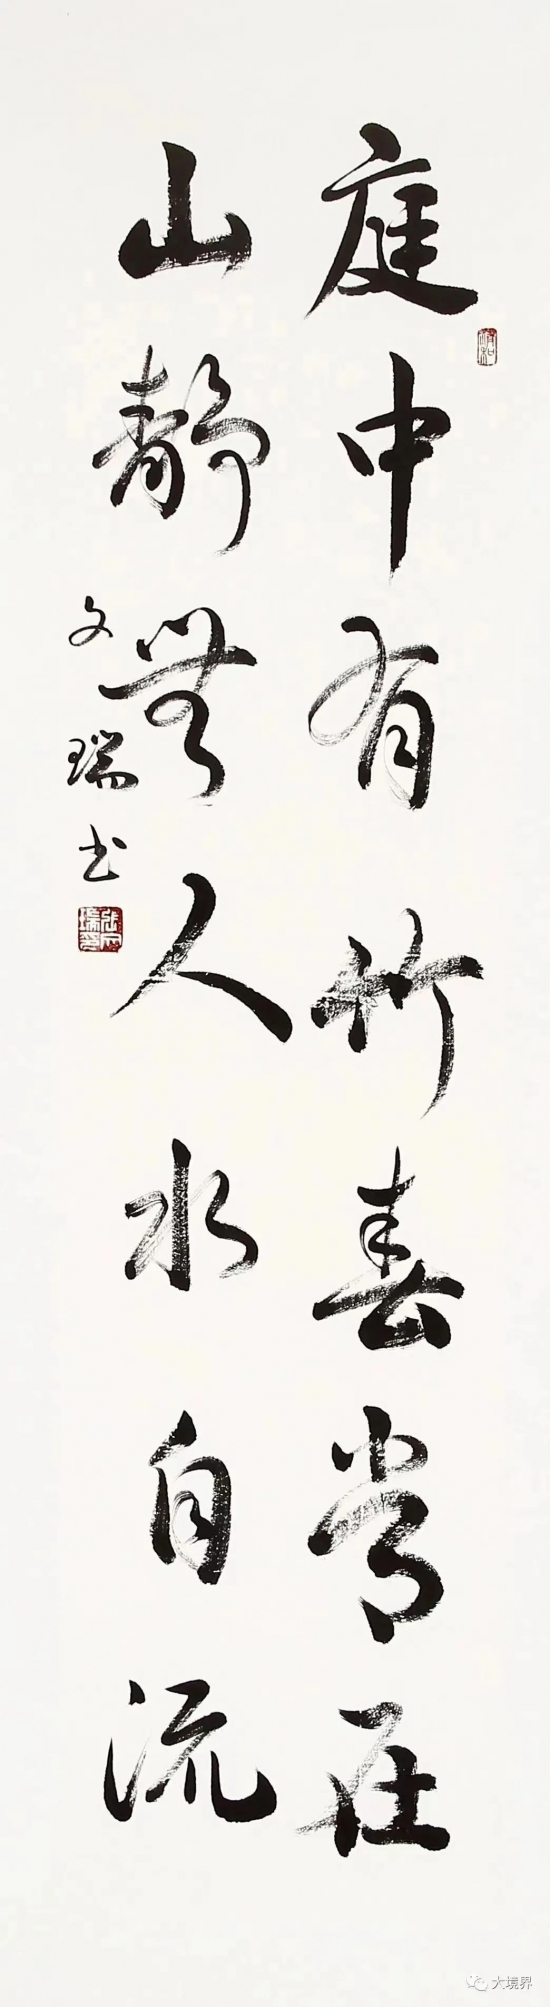 庭中有竹春常在
山静無人水自流
文瑞书
大境界